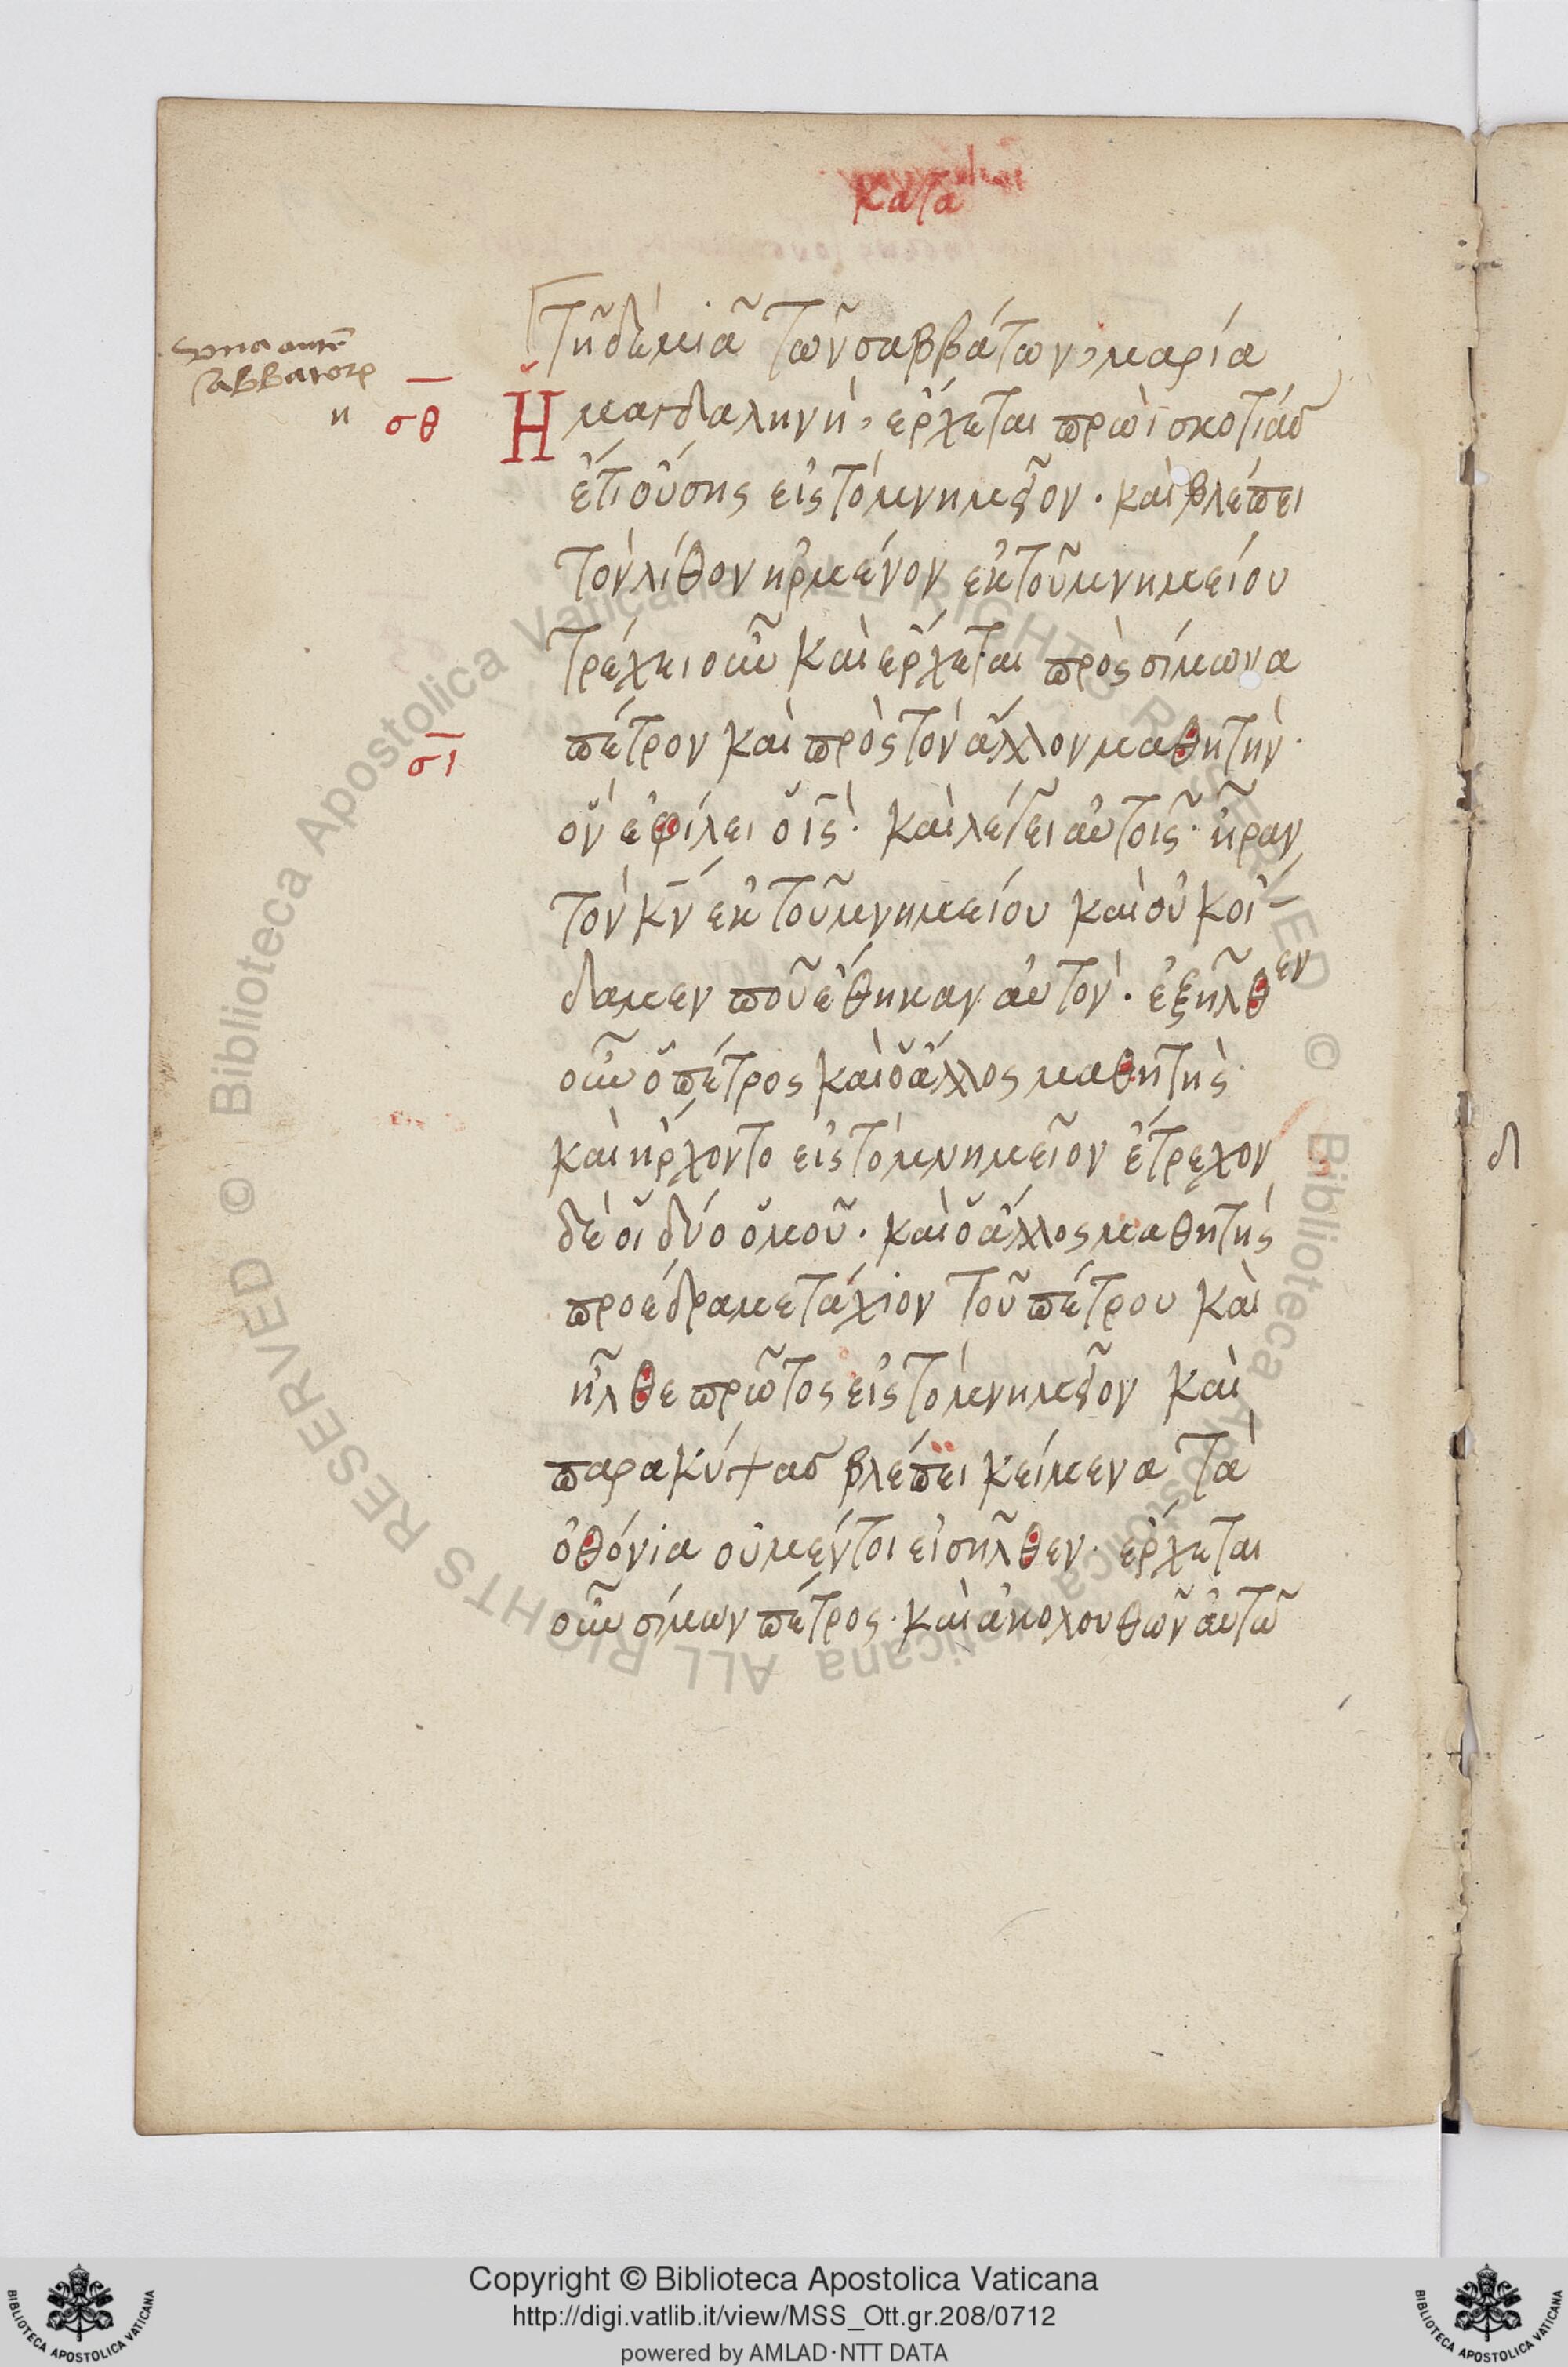 κατα
Τῆ δὲ μιᾶ τῶν σαββάτων, μαρία
Ἡ μαγδαληνὴ, ἔρχεται πρωῒ σκοτίας
ἔτι οὔσης εἰς τὸ μνημεῖον. καὶ βλέπει
τὸν λίθον ἠρμένον ἐκ τοῦ μνημείου
τρέχει οὖν καὶ ἔρχεται πρὸς σίμωνα
πέτρον καὶ πρὸς τὸν ἄλλον μαθητὴν.
ὃν ἐφίλει ὁ ις. καὶ λέγει αὐτοῖς. ἦραν
τὸν κν ἐκ τοῦ μνημείου καὶ οὐκ οἴ-
δαμεν ποῦ ἔθηκαν αὐτὸν. ἐξῆλθεν
οὖν ὁ πέτρος καὶ ὁ ἄλλος μαθητὴς.
καὶ ἤρχοντο εἰς τὸ μνημεῖον ἔτρεχον
δὲ οἱ δύο ὁμοῦ. καὶ ὁ ἄλλος μαθητὴς
προέδραμε τάχιον τοῦ πέτρου καὶ
ἦλθε πρῶτος εἰς τὸ μνημεῖον καὶ
παρακύψας βλέπει κείμενα τὰ
ὀθόνια οὐ μέντοι εἰσῆλθεν. ἔρχεται
οὖν σίμων πέτρος. καὶ ἀκολουθῶν αὐτῶ
σθ
σι
sabbatorum
Copyright © Biblioteca Apostolica Vaticana
http://digi.vatlib.it/view/MSS_Ott.gr.208/0712
powered by AMLAD·NTT DATA
BIBLIOTECA APOSTOLICA VATICANA
BIBLIOTECA APOSTOLICA VATICANA
© Biblioteca Apostolica Vaticana ALL RIGHTS RESERVED
© Biblioteca Apostolica Vaticana ALL RIGHTS RESERVED